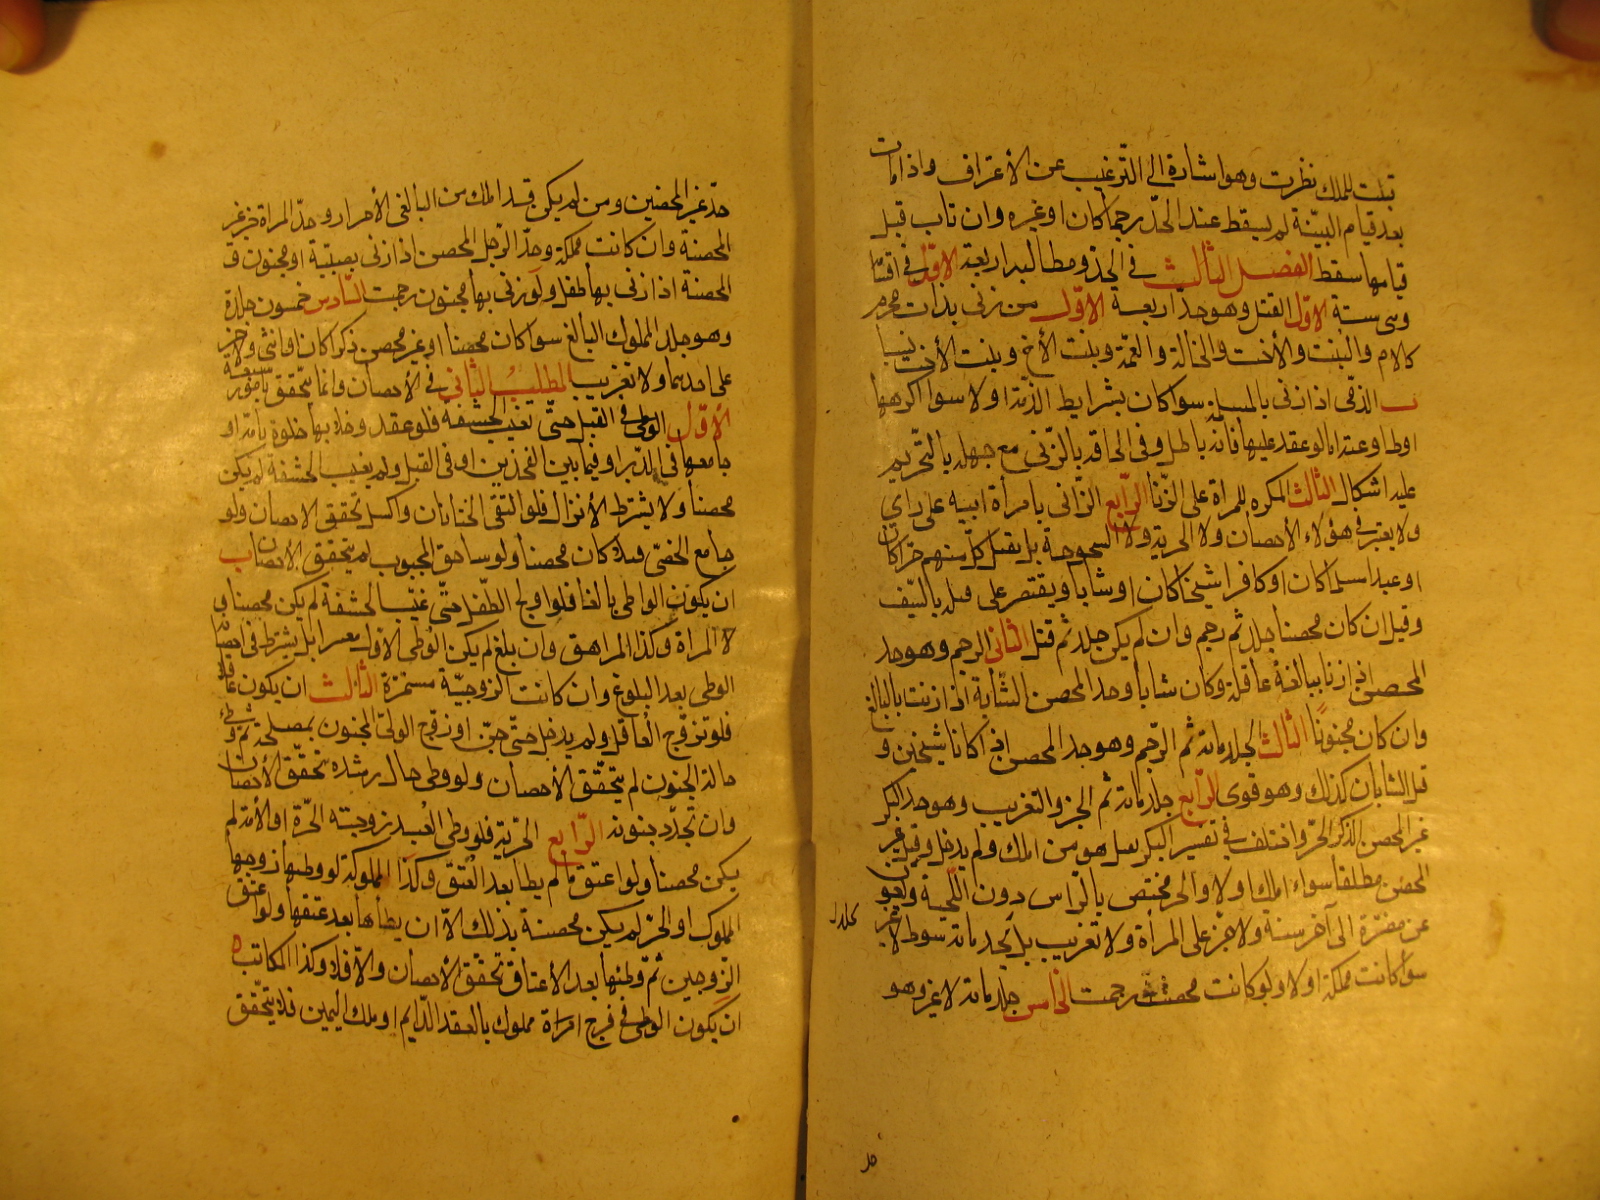 قبلت للملك نظرت وهو اشارة الى الترغيب عن الأعتراف واذا مات
بعد قيام البيّنة لم يسقط عند الحدّ رجما كان او غيره وان تاب قبل
قيامها سقط الفصل الثالث في الحد ومطالبه اربعة الاوّل في اقسا
وهى ستة الاوّل القتل وهو حدّ اربعة الاوّل من زنى بذات محرم
كالام والبنت والأخت والخالة والعمّة وبنت الأخ وبنت الأخت نسبا
ب الذمّى اذا زنى بالمسلمة سوا كان بشرايط الذمّة او لا سوا اكرهها
اوطاوعته اما لو عقد عليها فانه باطل وفى الحاقه بالزّنى مع جهله بالتّحريم
عليه اشكال الثالث المكره للمراة على الزّنا الرّابع الزّانى بامراة ابيه على راى
ولا يعتبر في هؤلاء الأحصان ولا الحريّة ولا الشيخوخة بل يقتل كلّ منهم حرّا كان
او عبدا مسلما كان او كافرا شيخا كان او شابا ويقتصر على قتله بالسّيف
وقيل ان كان محصنا جلد ثم رجم وان لم يكن جلد ثم قتل الثانى الرجم وهو حد
المحصن اذا زنا ببالغة عاقلة وكان شابا وحد المحصن الشّابة اذا زنت بالبالغ
وان كان مجنونًا الثالث الجلد مائة ثم الرّجم وهو حد المحصن اذا كانا شيخين و
قيل الشابان كذلك وهو قوى الرّابع جلد مائة ثم الجز والتغريب وهو حد البكر
غير المحصن الذكر الحرّ واختلف في تفسير البكر فقيل هو من املك ولم يدخل وقيل غير
المحصن مطلقا سواء املك او لا والجز مختص بالرّاس دون اللّحية
عن مصره الى آخر سنة ولا جزّ على المرأة ولا تغريب بل تجلد مائة سوط لا غير
سوا كانت مملكة او لا ولو كانت محصنة رجمت الخامس جلد مائة لا غير وهو
حد
حدّ غير المحصنين ومن لم يكن قد املك من البالغى الأحرار وحدّ المراة غير
المحصنة وان كانت مملكة وحدّ الرّجل المحصن اذا زنى بصبيّة او مجنون
المحصنة اذا زنى بها طفل ولو زنى بها مجنون رجمت السّادس خمسون جلدة
وهو جلد المملوك البالغ سوا كان محصنا او غير محصن ذكرا كان او انثى ولا جز
على احدهما ولا تغريب المطلب الثانى في الأحصان وانما يتحقق بامور سبعة
الأوّل الوطى في القبل حتّى تغيب الحشفة فلو عقد وخلا بها خلوة تامّة او
جامعها في الدّبر او فيما بين الفخذين او فى القبل ولم يغيب الحشفة لم يكن
محصنا ولا يشترط الأنزال فلو التقى الختانان واكسل تحقق الاحصان ولو
جامع الخصّى كان محصنا ولو ساحق المجبوب لم يتحقق الأحصان ب
ان يكون الواطى بالغا فلو اولج الطّفل حتّى غيّب الحشفة لم يكن محصنا و
لا المراة وكذا المراهق وان بلغ لم يكن الوُطى الاوّل معتبرا بل يشترط فى احصانه
الوطى بعد البلوغ وان كانت الزوجيّة مستمرّة الثالث ان يكون عاقلا
فلو تزوّج العُاقل ولم يدخل حتّى جنّ او زوّج الولىّ المجنون لمصلحة ثم وطى
حالة الجنون لم يتحّقق الأحصان ولو وطى حال رشده تحقّق الأحصان
وان تجدّد جنونه الرّابع الحرّية فلو وطى العُبد زوجته الحرّة او الأمة لم
يكن محصنا ولو اعتق مالم يطا بعد العُتق وكذا المملوكة لو وطئها زوجها
المملوك او الحرّ لم يكن محصنة بذلك الاّ ان يطأها بعد عتقها ولو اعتق
الزّوجين ثمّ وطئها بعد الأعتاق تحقّق الأحصان والّا فلا وكذا المكاتب ه
ان يكون الوطى في فرج امراة مملوك بالعقد الدّايم او ملك اليمين فلا يتحقّق